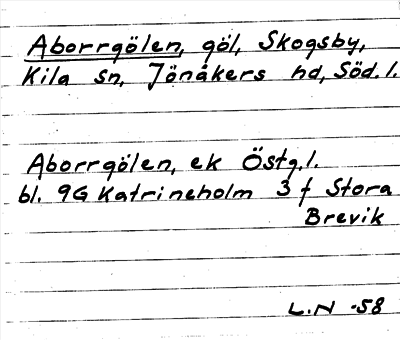 Aborrgölen, göl, Skogsby,
Kila sn, Jönåkers hd, Söd. l.
Aborrgölen, ek Östg. l.
bl. 9G Katrineholm 3 f Stora
Brevik
L.N -58